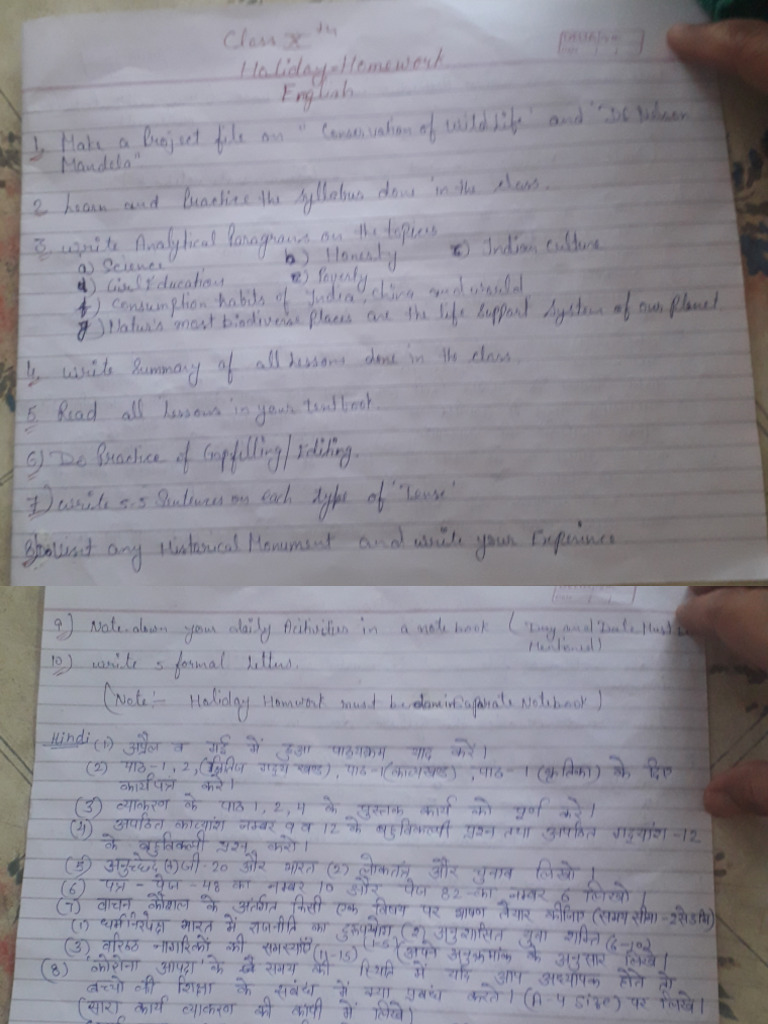 Class Xth
Holiday-Homework
English
1. Make a Project file on "Conservation of Wild life" and "Dr Nelson
Mandela"
2 Learn and Practice the syllabus done in the class.
3. write Analytical Paragraphs on the topics
a) Science b) Honesty c) Indian culture
d) Education e) Poverty
f) Consumption habits of India, china and world
g) Natur's most biodiverse places are the life support system of our planet
4. write summary of all Lessons done in the class.
5 Read all Lessons in your textbook.
6) Do Practice of Gapfilling/Editing.
7) write 5-5 Sentences on each type of 'Tense'
8) visit any Historical Monument and write your Experince
9) Note down your daily Activities in a note book (Day and Date Must be
Mentioned)
10) write 5 formal Letters.
(Note:- Holiday Homwork must be done in Separate Notebook)
Hindi (1) अप्रैल व मई में हुआ पाठ्यक्रम याद करें।
(2) पाठ-1, 2, (क्षितिज गद्य खण्ड), पाठ-1 (काव्यखण्ड), पाठ-1 (कृतिका) के दिए
कार्यपत्र करें।
(3) व्याकरण के पाठ 1, 2, 4 के पुस्तक कार्य को पूर्ण करें।
(4) अपठित काव्यांश नम्बर 9 व 12 के बहुविकल्पी प्रश्न तथा अपठित गद्यांश-12
के बहुविकल्पी प्रश्न करो।
(5) अनुच्छेद (1) जी-20 और भारत (2) लोकतंत्र और चुनाव लिखो।
(6) पत्र - पेज-48 का नम्बर 10 और पेज 82 का नम्बर 6 लिखो।
(7) वाचन कौशल के अंतर्गत किसी एक विषय पर भाषण तैयार कीजिए (समय सीमा-2से3मि)
(1) धर्मनिरपेक्ष भारत में राजनीति का दुरुपयोग (1-5) (2) अनुशासित युवा शक्ति (6-10)
(3) वरिष्ठ नागरिकों की समस्याएँ (11-15) (अपने अनुक्रमांक के अनुसार लिखें।
(8) 'कोरोना आपदा' के समय की स्थिति में यदि आप अध्यापक होते तो
बच्चो की शिक्षा के संबंध में क्या प्रबंध करते। (A-4 Size) पर लिखें।
(सारा कार्य व्याकरण की कॉपी में लिखें।